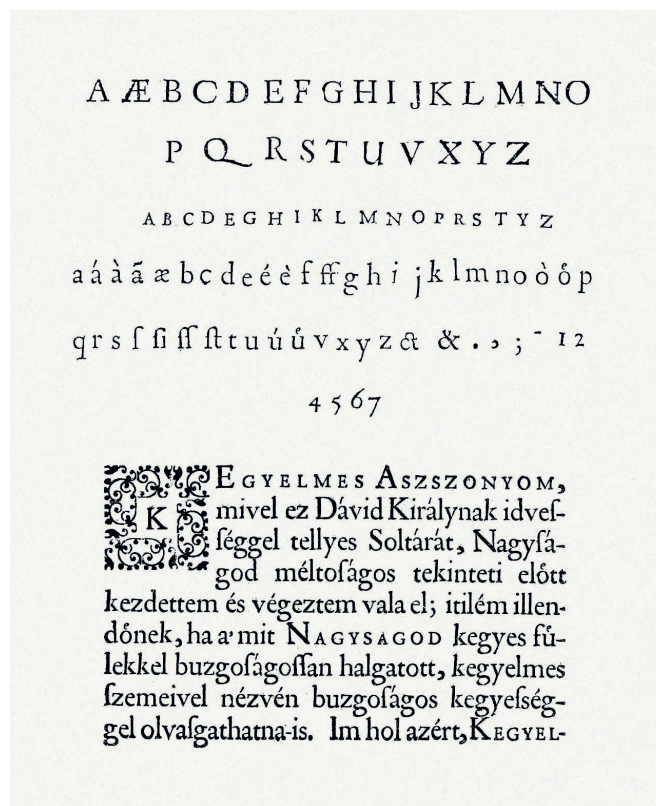 A Æ B C D E F G H I J K L M N O
P Q R S T U V X Y Z
A B C D E G H I K L M N O P R S T Y Z
a á à ã æ b c d e é è f ff g h i j k l m n o ò o̍ p
q r s ſ ſi ſſ ſt t u ú ů v x y z ct & . , ; ˉ 1 2
4 5 6 7
KEGYELMES ASZSZONYOM,
mivel ez Dávid Királynak idveſ-
ſéggel tellyes Soltárát, Nagyſá-
god méltoſágos tekinteti elo̍tt
kezdettem és végeztem vala el; itilém illen-
do̍nek, ha a' mit NAGYSAGOD kegyes fů-
lekkel buzgoſágoſſan halgatott, kegyelmes
ſzemeivel nézvén buzgoſágos kegyeſség-
gel olvaſgathatna-is. Im hol azért, KEGYEL-